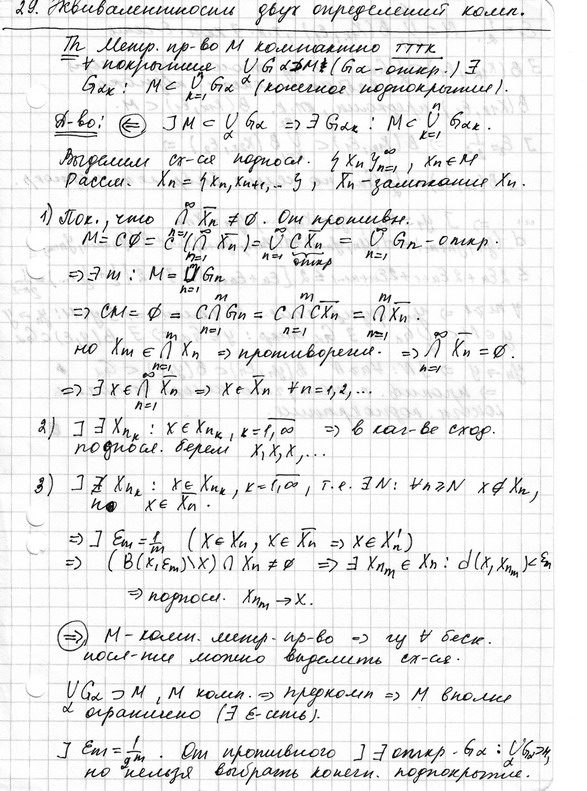 29. Эквивалентности двух определений комп.
Th Метр. пр-во M компактно тттк
∀ покрытие ∪Gα⊃M (Gα-откр.) ∃
Gαk : M ⊂ ⋃_{k=1}^{n} Gα (конечное подпокрытие).
Д-во: (⇐) ] M ⊂ ⋃_α Gα ⇒ ∃ Gαk : M ⊂ ⋃_{k=1}^{n} Gαk.
Выделим сх-ся подпосл. {xn}_{n=1}^{∞}, xn∈M
Рассм. Xn = {xn, xn+1, ...}, X̅n - замыкание Xn.
1) Пок., что ⋂_{n=1}^{∞} X̅n ≠ ∅. От противн.
M = C∅ = C(⋂_{n=1}^{∞} X̅n) = ⋃_{n=1}^{∞} CX̅n = ⋃_{n=1}^{∞} Gn - откр.
откр
⇒ ∃ m : M = ⋃_{n=1}^{m} Gn
⇒ CM = ∅ = C⋂_{n=1}^{m} Gn = C⋂_{n=1}^{m} CX̅n = ⋂_{n=1}^{m} X̅n.
но Xm ∈ ⋂_{n=1}^{m} Xn ⇒ противоречие. ⇒ ⋂_{n=1}^{∞} X̅n = ∅.
⇒ ∃ x ∈ ⋂_{n=1}^{∞} X̅n ⇒ x ∈ X̅n ∀n = 1, 2, ...
2) ] ∃ Xnk : x ∈ Xnk, k = 1,∞ ⇒ в кач-ве сход.
подпосл. берем x, x, x, ...
3) ] ∄ Xnk : x ∈ Xnk, k = 1,∞, т.е. ∃N : ∀n ≥ N x ∉ Xn,
но x ∈ X̅n.
⇒ ] εm = 1/m (x ∈ Xn, x ∈ X̅n ⇒ x ∈ X'n)
⇒ (B(x, εm) \ x) ∩ Xn ≠ ∅ ⇒ ∃ xnm ∈ Xn : d(x, xnm) < εm
⇒ подпосл. xnm → x.
(⇒) M - комп. метр. пр-во ⇒ из ∀ беск.
посл-ти можно выделить сх-ся.
⋃_α Gα ⊃ M, M комп. ⇒ предкомп ⇒ M вполне
ограничено (∃ ε-сеть).
] εm = 1/2^m. От противного ] ∃ откр - Gα : ⋃_α Gα ⊃ M,
но нельзя выбрать конечн. подпокрытие.